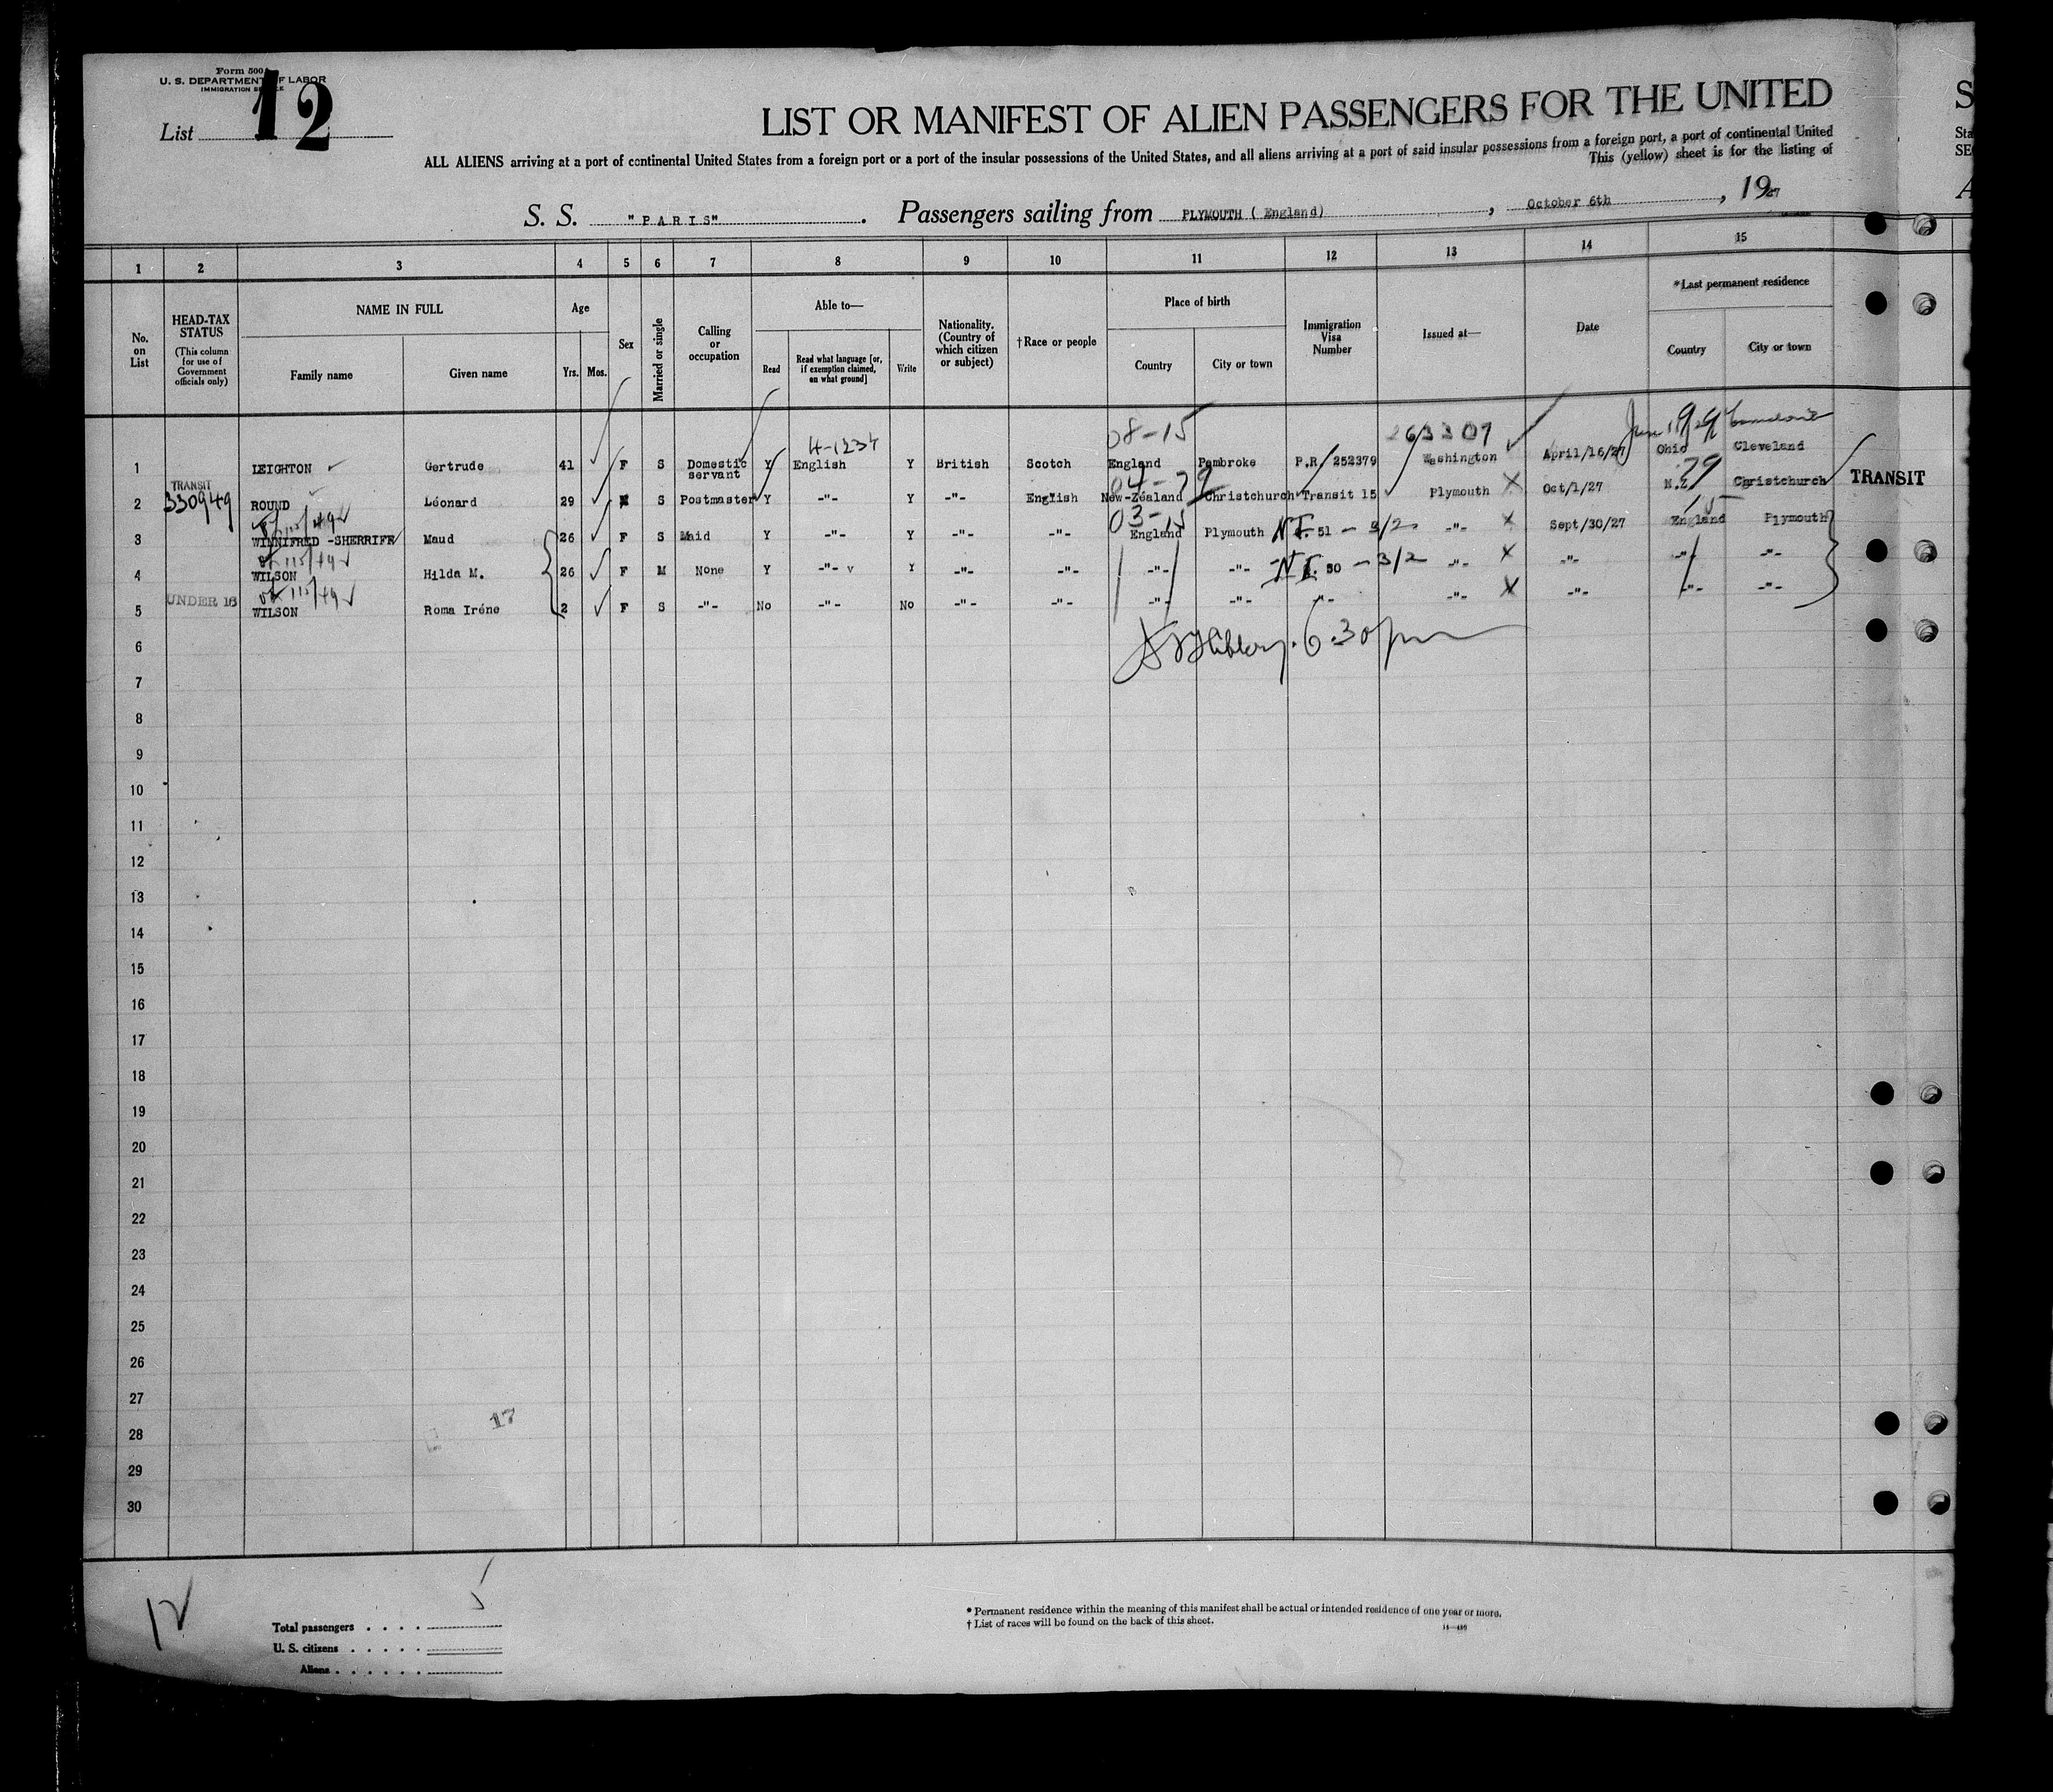 Form 500
U. S. DEPARTMENT OF LABOR
IMMIGRATION SERVICE
List 12
LIST OR MANIFEST OF ALIEN PASSENGERS FOR THE UNITED
ALL ALIENS arriving at a port of continental United States from a foreign port or a port of the insular possessions of the United States, and all aliens arriving at a port of said insular possessions from a foreign port, a port of continental United
This (yellow) sheet is for the listing of
S. S. "PARIS". Passengers sailing from PLYMOUTH ( England), October 6th, 1927
1 2 3 4 5 6 7 8 9 10 11 12 13 14 15
No. on List
HEAD-TAX STATUS (This column for use of Government officials only)
NAME IN FULL Family name Given name
Age Yrs. Mos.
Sex
Married or single
Calling or occupation
Able to— Read Read what language [or, if exemption claimed, on what ground] Write
Nationality. (Country of which citizen or subject)
†Race or people
Place of birth Country City or town
Immigration Visa Number
Issued at—
Date
*Last permanent residence Country City or town
4-1234 08-15 263307
1 LEIGHTON Gertrude 41 F S Domestic servant Y English Y British Scotch England Pembroke P.R/ 252379 Washington April/16/27 Ohio Cleveland
04-79 29
2 TRANSIT 330949 ROUND Léonard 29 S Postmaster Y -"- Y -"- English New-Zéaland Christchurch Transit 15 Plymouth Oct/1/27 N.Z Christchurch TRANSIT
03-15 15
3 WINNIFRED -SHERRIFF Maud 26 F S Maid Y -"- Y -"- -"- England Plymouth N.I. 51 - 3/2 -"- Sept/30/27 England Plymouth
4 WILSON Hilda M. 26 F M None Y -"- v Y -"- -"- -"- -"- N I. 50 - 3/2 -"- -"- -"- -"-
5 UNDER 16 WILSON Roma Iréne 2 F S -"- No -"- No -"- -"- -"- -"- -"- -"- -"- -"- -"-
6 6.30 pm
7
8
9
10
11
12
13
14
15
16
17
18
19
20
21
22
23
24
25
26
27
17
28
29
30
12
5
Total passengers
U. S. citizens
Aliens
* Permanent residence within the meaning of this manifest shall be actual or intended residence of one year or more.
† List of races will be found on the back of this sheet.